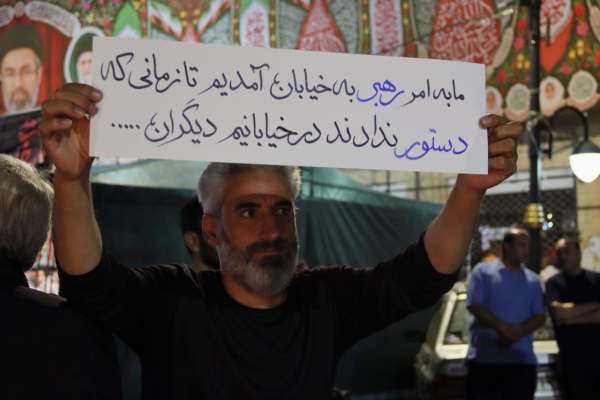 ما به امر رهبر به خیابان آمدیم تا زمانی که
دستور ندادند در خیابانیم دیگران .....